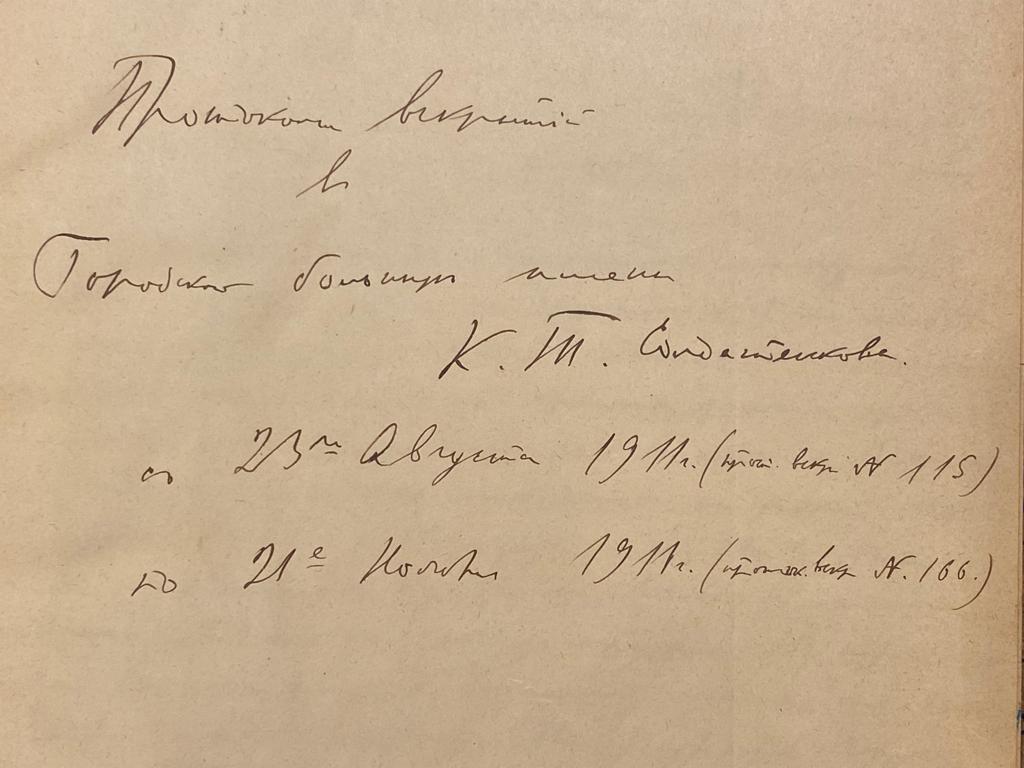 Протоколы вскрытій
въ
Городской больницѣ имени
К. Т. Солдатенкова.
съ 23го Августа 1911 г. (прот. вскр. № 115)
по 21е Ноября 1911 г. (проток. вскр. № 166.)